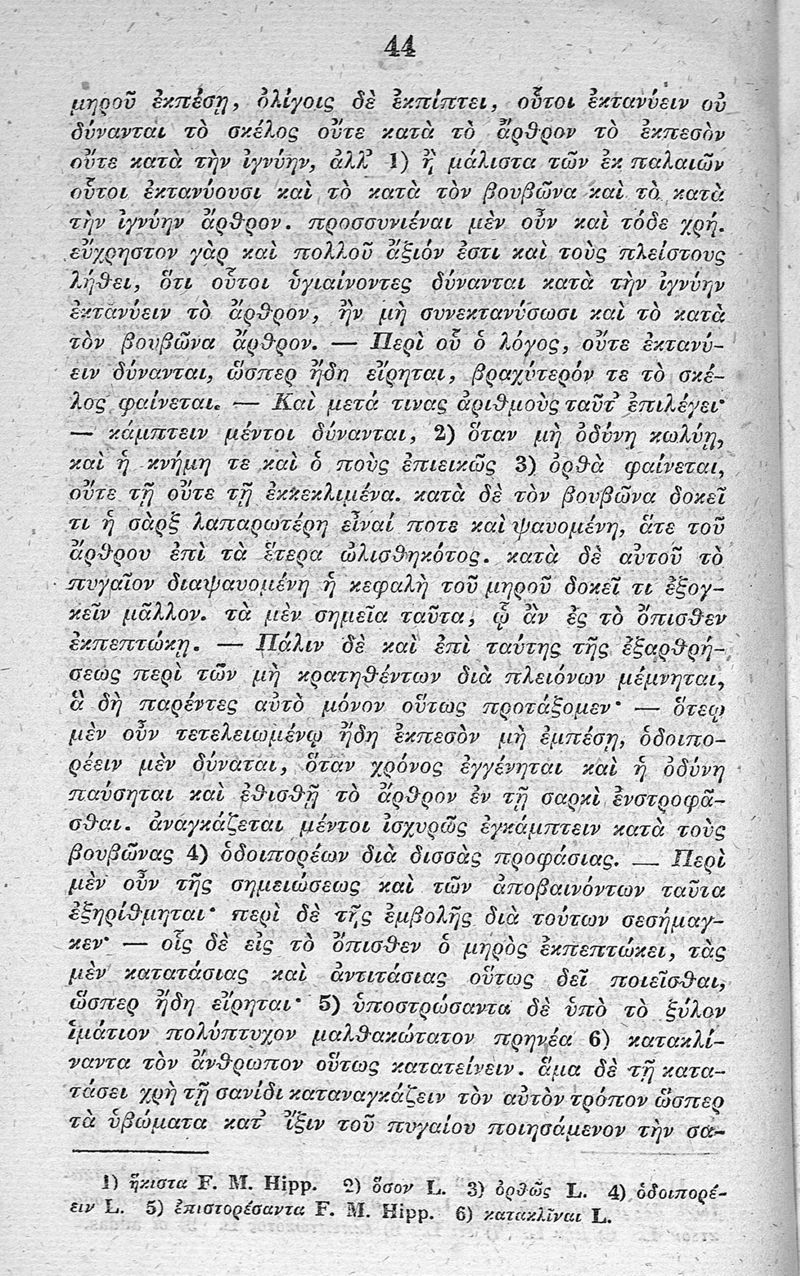 44
μηροῦ ἐκπέσῃ, ὀλίγοις δὲ ἐκπίπτει, οὗτοι ἐκτανύειν οὐ
δύνανται τὸ σκέλος οὔτε κατὰ τὸ ἄρθρον τὸ ἐκπεσὸν
οὔτε κατὰ τὴν ἰγνύην, ἀλλ᾽ 1) ἢ μάλιστα τῶν ἐκ παλαιῶν
οὗτοι ἐκτανύουσι καὶ τὸ κατὰ τὸν βουβῶνα καὶ τὸ κατὰ
τὴν ἰγνύην ἄρθρον. προσσυνιέναι μὲν οὖν καὶ τόδε χρή.
εὔχρηστον γὰρ καὶ πολλοῦ ἄξιόν ἐστι καὶ τοὺς πλείστους
λήθει, ὅτι οὗτοι ὑγιαίνοντες δύνανται κατὰ τὴν ἰγνύην
ἐκτανύειν τὸ ἄρθρον, ἢν μὴ συνεκτανύσωσι καὶ τὸ κατὰ
τὸν βουβῶνα ἄρθρον. — Περὶ οὗ ὁ λόγος, οὔτε ἐκτανύ-
ειν δύνανται, ὥσπερ ἤδη εἴρηται, βραχύτερόν τε τὸ σκέ-
λος φαίνεται. — Καὶ μετά τινας ἀριθμοὺς ταῦτ᾽ ἐπιλέγει·
— κάμπτειν μέντοι δύνανται, 2) ὅταν μὴ ὀδύνη κωλύῃ,
καὶ ἡ κνήμη τε καὶ ὁ ποὺς ἐπιεικῶς 3) ὀρθὰ φαίνεται,
οὔτε τῇ οὔτε τῇ ἐκκεκλιμένα. κατὰ δὲ τὸν βουβῶνα δοκεῖ
τι ἡ σὰρξ λαπαρωτέρη εἶναί ποτε καὶ ψαυομένη, ἅτε τοῦ
ἄρθρου ἐπὶ τὰ ἕτερα ὠλισθηκότος. κατὰ δὲ αὐτοῦ τὸ
πυγαῖον διαψαυομένη ἡ κεφαλὴ τοῦ μηροῦ δοκεῖ τι ἐξογ-
κεῖν μᾶλλον. τὰ μὲν σημεῖα ταῦτα, ᾧ ἂν ἐς τὸ ὄπισθεν
ἐκπεπτώκῃ. — Πάλιν δὲ καὶ ἐπὶ ταύτης τῆς ἐξαρθρή-
σεως περὶ τῶν μὴ κρατηθέντων διὰ πλειόνων μέμνηται,
ἃ δὴ παρέντες αὐτὸ μόνον οὕτως προτάξομεν· — ὅτεῳ
μὲν οὖν τετελειωμένῳ ἤδη ἐκπεσὸν μὴ ἐμπέσῃ, ὁδοιπο-
ρέειν μὲν δύναται, ὅταν χρόνος ἐγγένηται καὶ ἡ ὀδύνη
παύσηται καὶ ἐθισθῇ τὸ ἄρθρον ἐν τῇ σαρκὶ ἐνστροφᾶ-
σθαι. ἀναγκάζεται μέντοι ἰσχυρῶς ἐγκάμπτειν κατὰ τοὺς
βουβῶνας 4) ὁδοιπορέων διὰ δισσὰς προφάσιας. — Περὶ
μὲν οὖν τῆς σημειώσεως καὶ τῶν ἀποβαινόντων ταῦτα
ἐξηρίθμηται· περὶ δὲ τῆς ἐμβολῆς διὰ τούτων σεσήμαγ-
κεν· — οἷς δὲ εἰς τὸ ὄπισθεν ὁ μηρὸς ἐκπεπτώκει, τὰς
μὲν κατατάσιας καὶ ἀντιτάσιας οὕτως δεῖ ποιεῖσθαι,
ὥσπερ ἤδη εἴρηται· 5) ὑποστρώσαντα δὲ ὑπὸ τὸ ξύλον
ἱμάτιον πολύπτυχον μαλθακώτατον πρηνέα 6) κατακλί-
ναντα τὸν ἄνθρωπον οὕτως κατατείνειν. ἅμα δὲ τῇ κατα-
τάσει χρὴ τῇ σανίδι καταναγκάζειν τὸν αὐτὸν τρόπον ὥσπερ
τὰ ὑβώματα κατ᾽ ἴξιν τοῦ πυγαίου ποιησάμενον τὴν σα-
1) ἥκιστα F. M. Hipp. 2) ὅσον L. 3) ὀρθῶς L. 4) ὁδοιπορέ-
ειν L. 5) ἐπιστορέσαντα F. M. Hipp. 6) κατακλῖναι L.